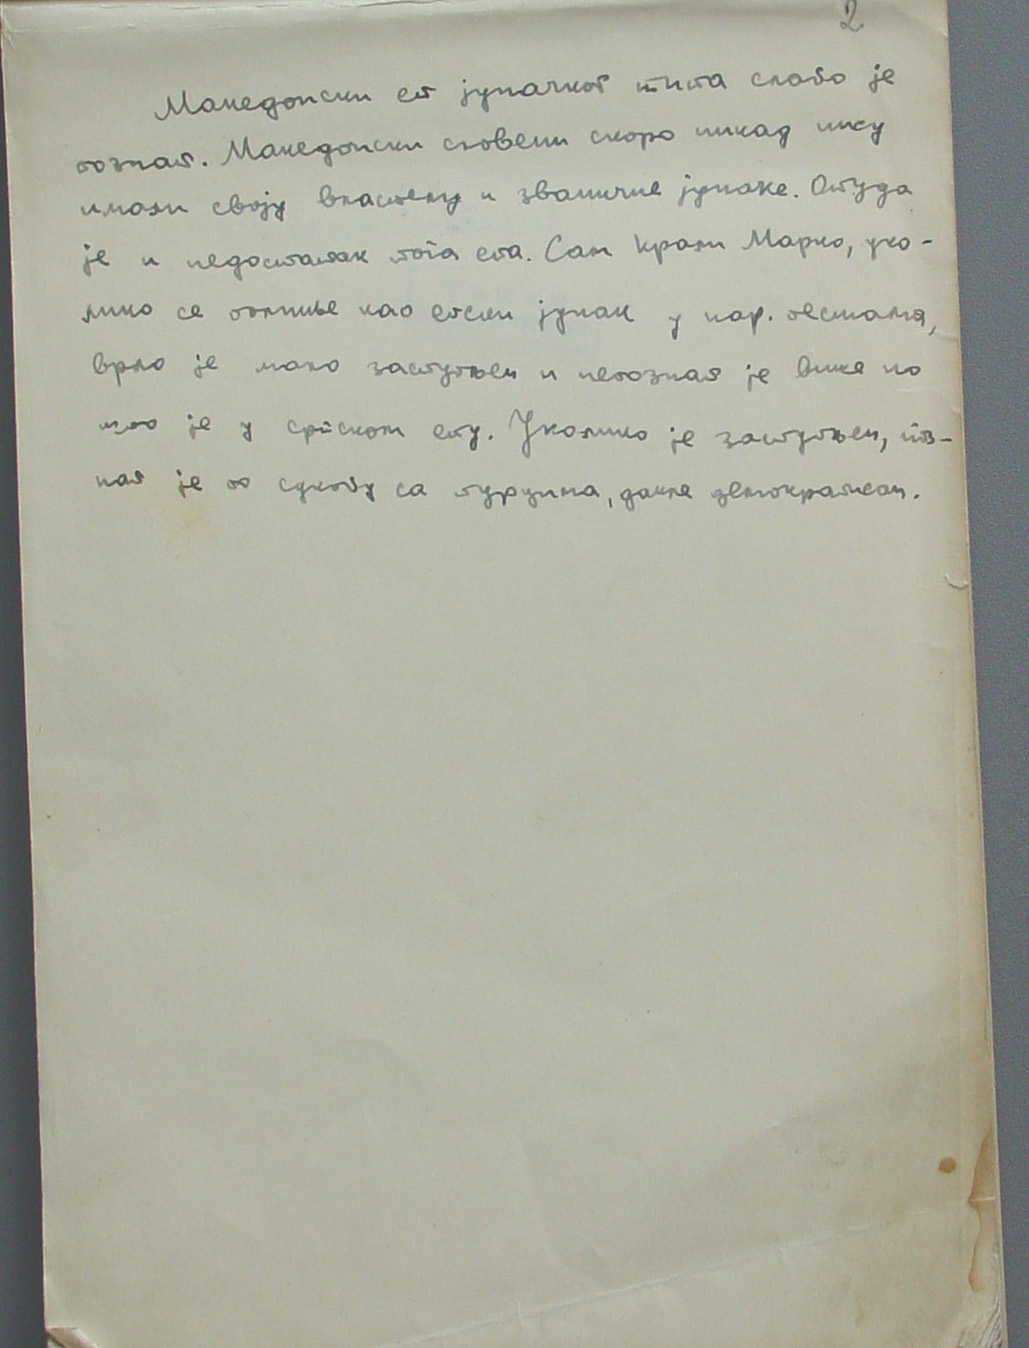 2
Македонски еп јуначког типа слабо је
познат. Македонски словени скоро никад нису
имали своју властелу и званичне јунаке. Отуда
је и недостатак тога епа. Сам Крали Марко, уко-
лико се помиње као епски јунак у нар. песмама,
врло је мало заступљен и непознат је више но
што је у српском епу. Уколико је заступљен, поз-
нат је по сукобу са турцима, дакле демократски.